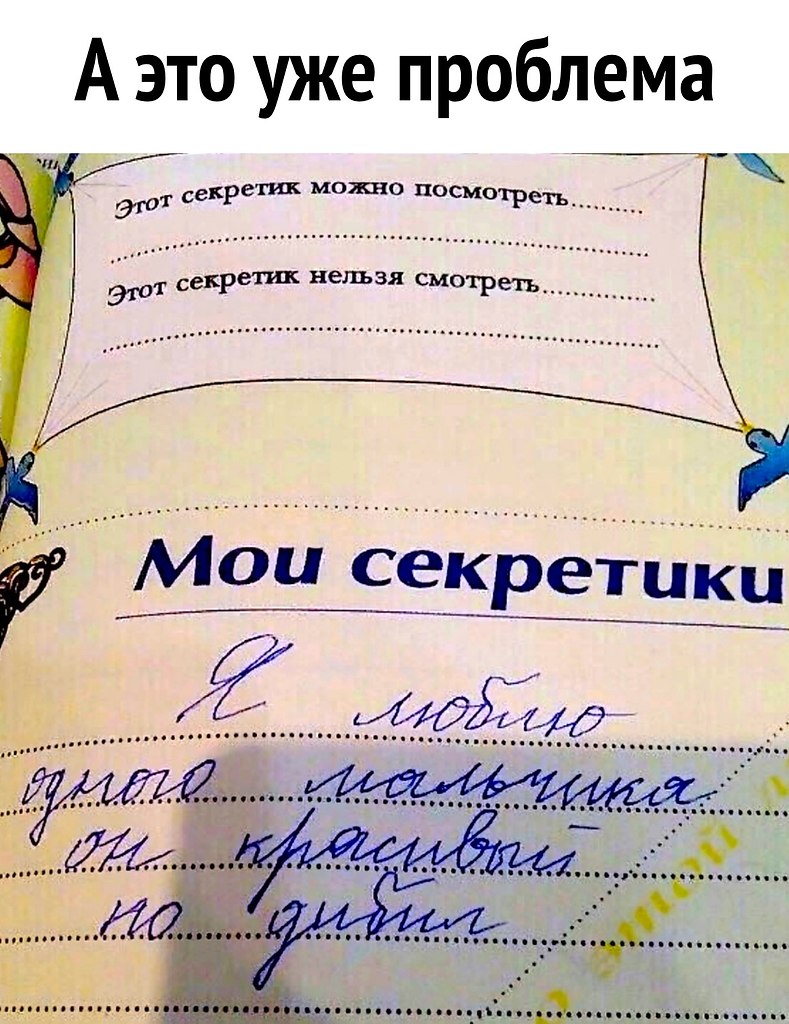 А это уже проблема
Этот секретик можно посмотреть..........
Этот секретик нельзя смотреть...............
Мои секретики
Я люблю
одного мальчика
он красивый
но дибил